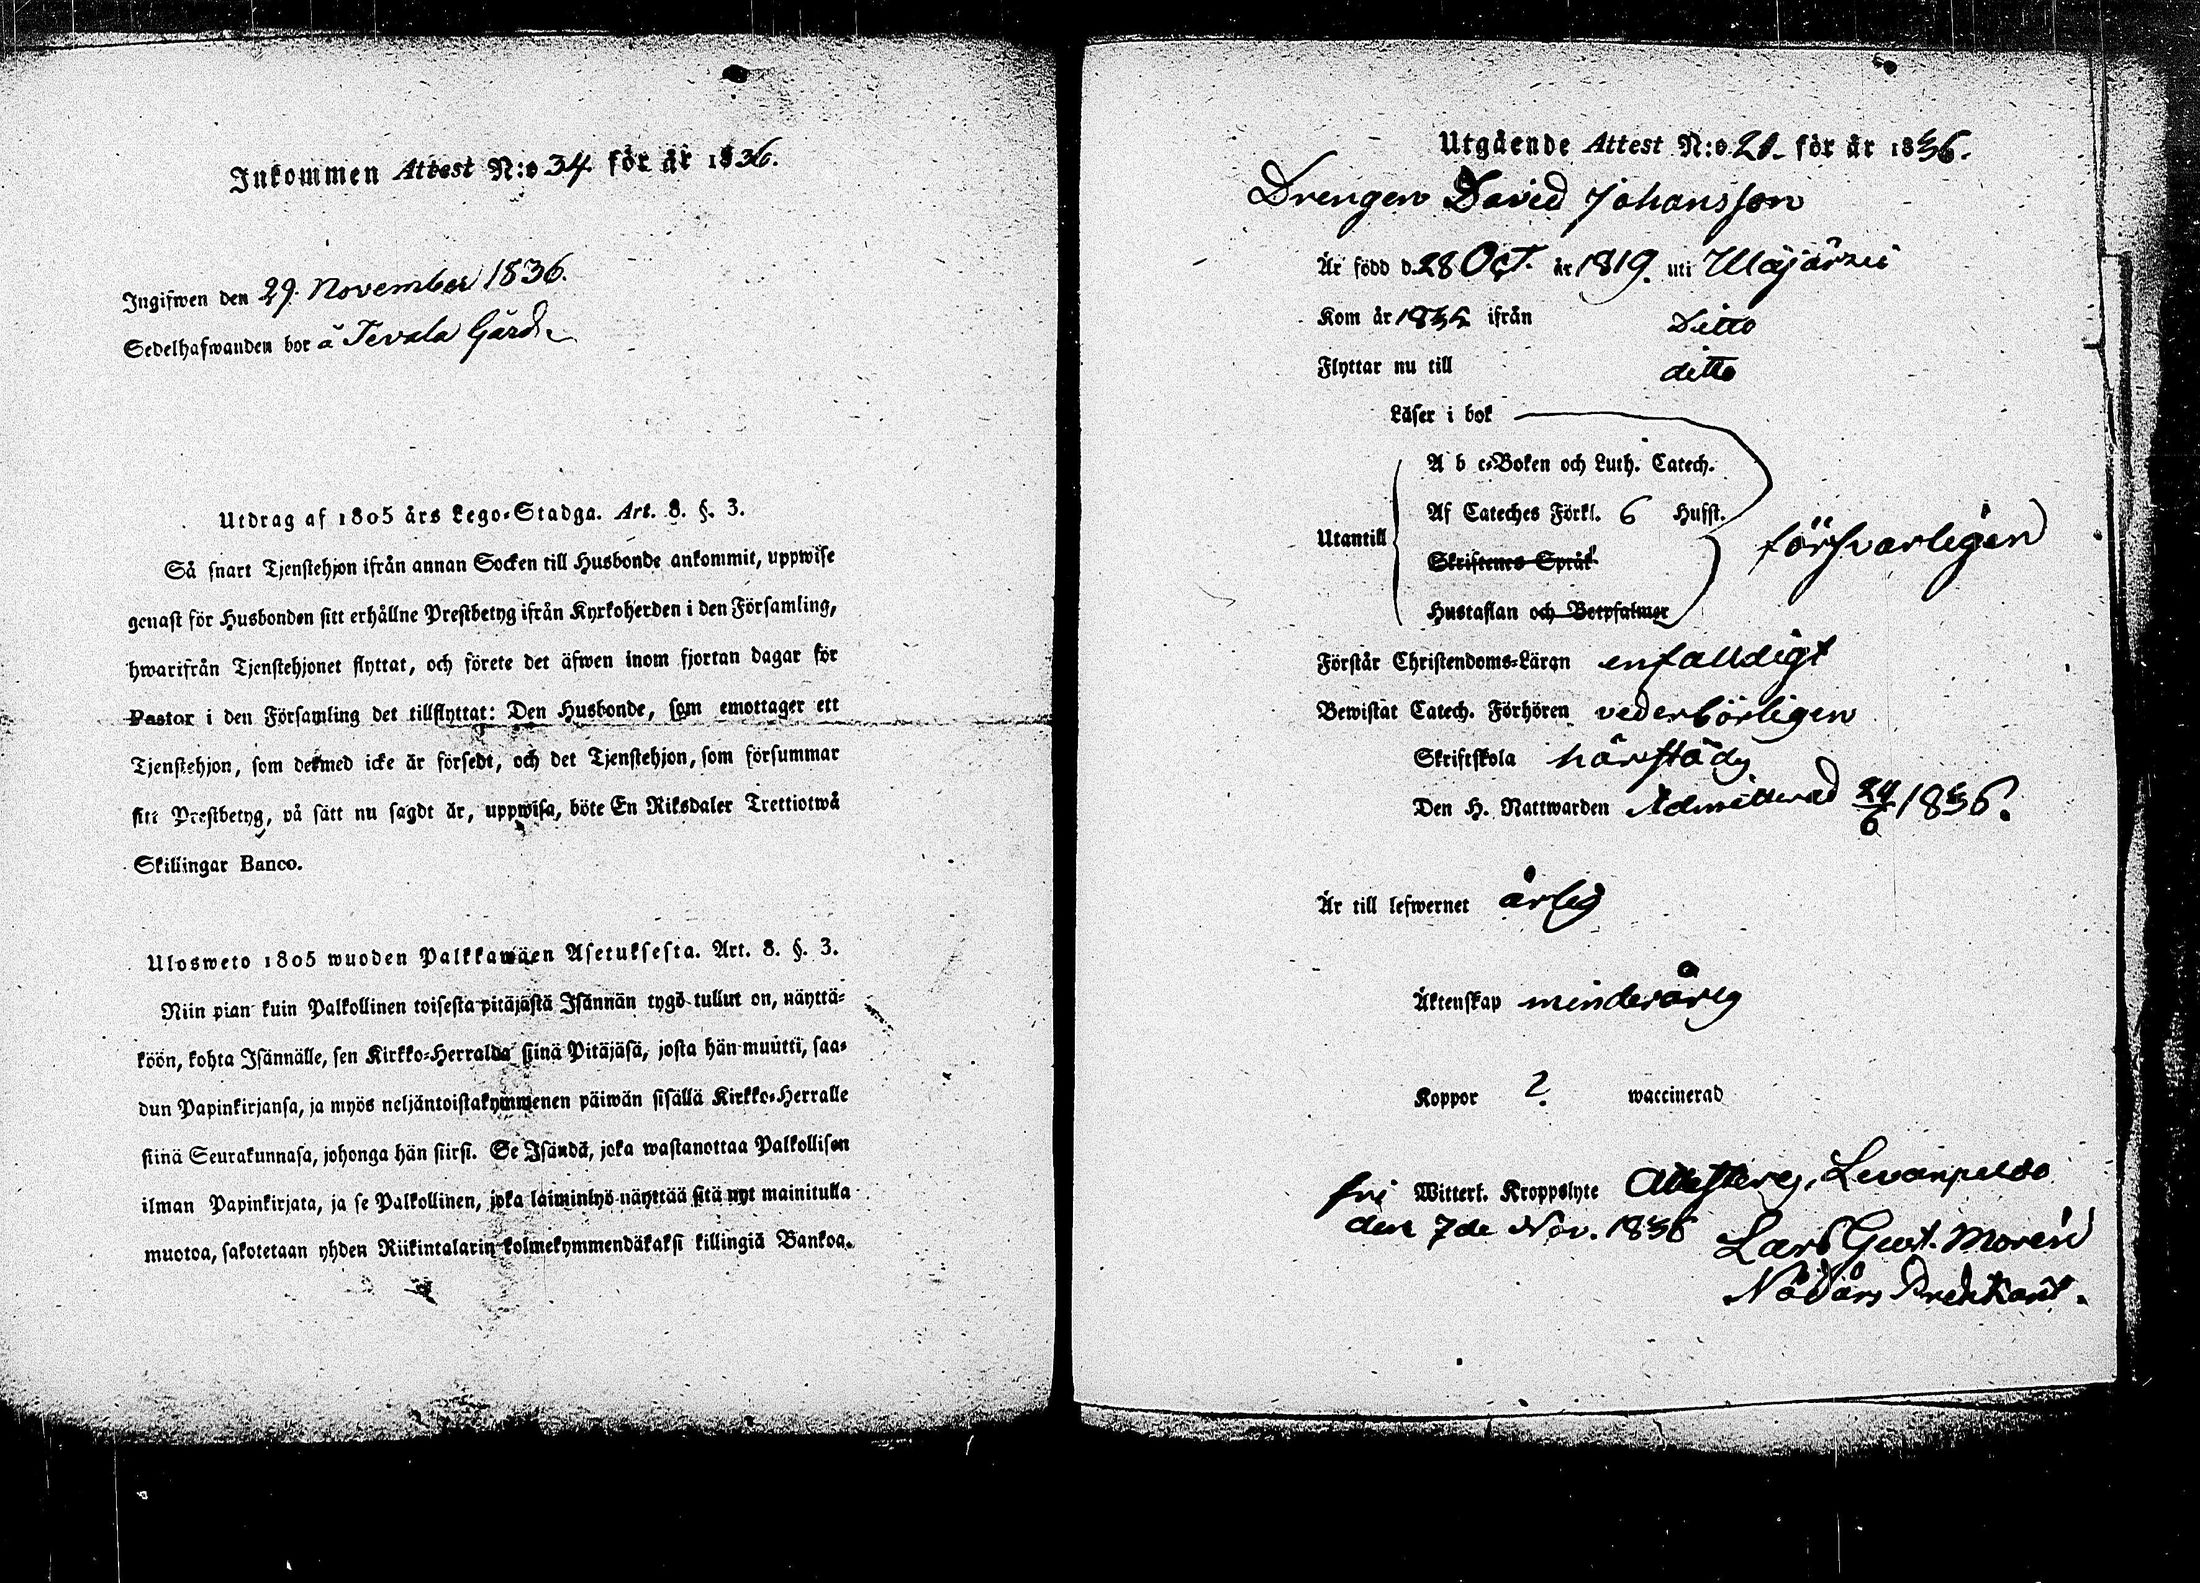 Inkommen Attest N:o 34. för år 1836.
Ingifwen den 29. November 1836.
Sedelhafwanden bor å Tevala Gård
Utdrag af 1805 års Lego-Stadga. Art. 8. §. 3.
Så snart Tjenstehjon ifrån annan Socken till Husbonde ankommit, uppwise
genast för Husbonden sitt erhållne Prestbetyg ifrån Kyrkoherden i den Församling,
hwarifrån Tjenstehjonet flyttat, och förete det äfwen inom fjortan dagar för
Pastor i den Församling det tillflyttat: Den Husbonde, som emottager ett
Tjenstehjon, som dermed icke är försedt, och det Tjenstehjon, som försummar
sitt Prestbetyg, på sätt nu sagdt är, uppwisa, böte En Riksdaler Trettiotwå
Skillingar Banco.
Ulosweto 1805 wuoden Palkkawäen Asetuksesta. Art. 8. §. 3.
Niin pian kuin Palkollinen toisesta pitäjästä Isännän tygö tullut on, näyttä-
köön, kohta Isännälle, sen Kirkko-Herralda siinä Pitäjäsä, josta hän muutti, saa-
dun Papinkirjansa, ja myös neljäntoistakymmenen päiwän sisällä Kirkko-Herralle
siinä Seurakunnasa, johonga hän siirsi. Se Isändä, joka wastanottaa Palkollisen
ilman Papinkirjata, ja se Palkollinen, joka laiminlyö näyttää sitä nyt mainitulla
muotoa, sakotetaan yhden Riikintalarin kolmekymmendäkaksi killingiä Bankoa.
Utgående Attest N:o 21. för år 1836.
Drengen David Johansson
Är född d. 28 Oct. år 1819. uti
Kom år ifrån Ditto
Flyttar nu till ditto
Läser i bok
A b c-Boken och Luth. Catech.
Af Cateches Förkl. 6 Hufst.
Utantill försvarligen
Skriftenes Språk
Hustaflan och Botpsalmer
Förstår Christendoms-Läran enfalldigt
Bewistat Catech. Förhören vederbörligen
Skriftskola härstädes
Den H. Nattwarden Admitterad 24/6 1836.
Är till lefwernet ärlig
Äktenskap minderårig
Koppor ? waccinerad
fri Witterl. Kroppslyte Attesterej, Levanpeldo
den 7de Nov. 1836 Lars Gust. Morén
Nådårs Predikant.